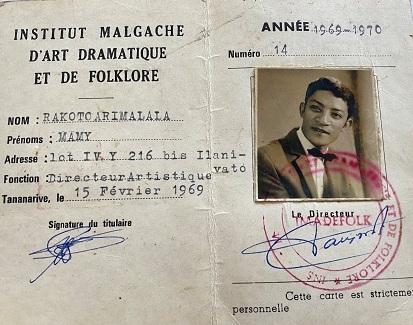 INSTITUT MALGACHE
D'ART DRAMATIQUE
ET DE FOLKLORE
NOM : RAKOTOARIMALALA
Prénoms : MAMY
Adresse : lot IV.Y 216 bis Ilani-
vato
Fonction : DirecteurArtistique
Tananarive, le 15 Février 1969
Signature du titulaire
ANNÉE 1969-1970
Numéro : 14
Le Directeur
IMADEFOLK
ET DE FOLKLORE * INS
Cette carte est strictement
personnelle